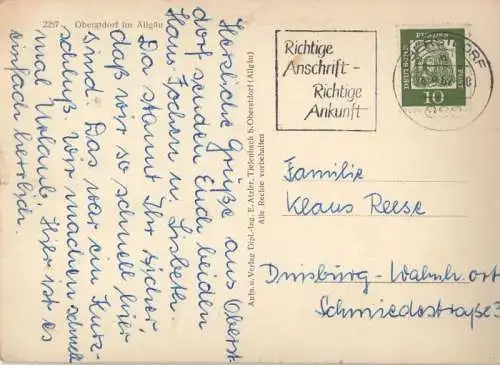 2257 Oberstdorf im Allgäu
Herzliche Grüße aus Oberst-
dorf senden Euch beiden
Hans-Jochen u. Lisbeth
Da staunt Ihr sicher,
daß wir so schnell hier
sind. Das war ein Kurz-
schluß. Wir machen schnell
mal Urlaub. Hier ist es
einfach herrlich.
Aufn. u. Verlag Dipl.-Ing. E. Atzler, Tiefenbach b. Oberstdorf (Allgäu)
Alle Rechte vorbehalten
Richtige
Anschrift -
Richtige
Ankunft
DEUTSCHE BUNDESPOST
10
Familie
Klaus Reese
Duisburg-Wanh. ort
Schmiedestraße 3